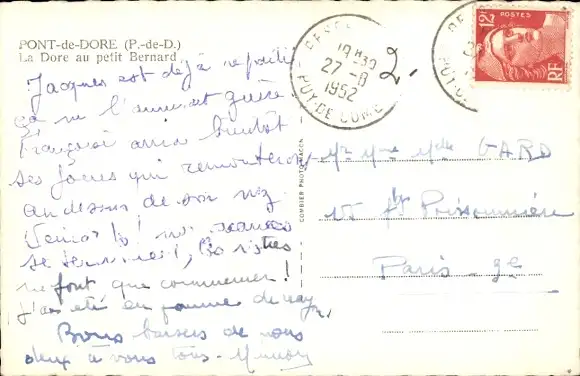 PONT-de-DORE (P.-de-D.)
La Dore au petit Bernard
Jacques est déjà reparti
ça ne l'amusait guère.
Françoise aura bientôt
ses joues qui remonteront
au dessus de son nez
se terminent,
ne font que commencer!
J'ai été en panne de
Bons baisers de nous
deux à vous tous.
COMBIER PHOTO MACON
19H30
27-8
1952
PUY-DE-DOME
2.
12F
POSTES
RF
PUY-DE
Mr Mme Melle GARD
15 Fg Poissonnière
Paris - 9e